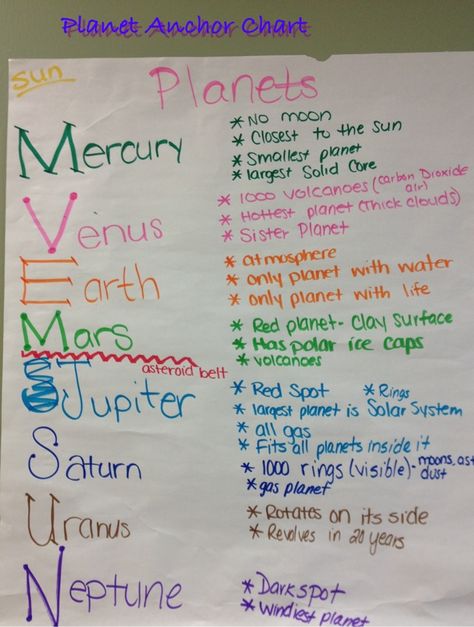 Planet Anchor Chart
Sun
Planets
Mercury
* No moon
* Closest to the sun
* Smallest planet
* largest Solid Core
Venus
* 1000 volcanoes (Carbon Dioxide
air)
* Hottest planet (Thick clouds)
* Sister Planet
Earth
* atmosphere
* only planet with water
* only planet with life
Mars
* Red planet - Clay Surface
* Has polar ice caps
* volcanoes
asteroid belt
Jupiter
* Red Spot * Rings
* largest planet is Solar System
* all gas
* Fits all planets inside it
Saturn
* 1000 rings (visible) - moons, ast
dust
* gas planet
Uranus
* Rotates on its side
* Revolves in 20 years
Neptune
* Dark spot
* Windiest planet